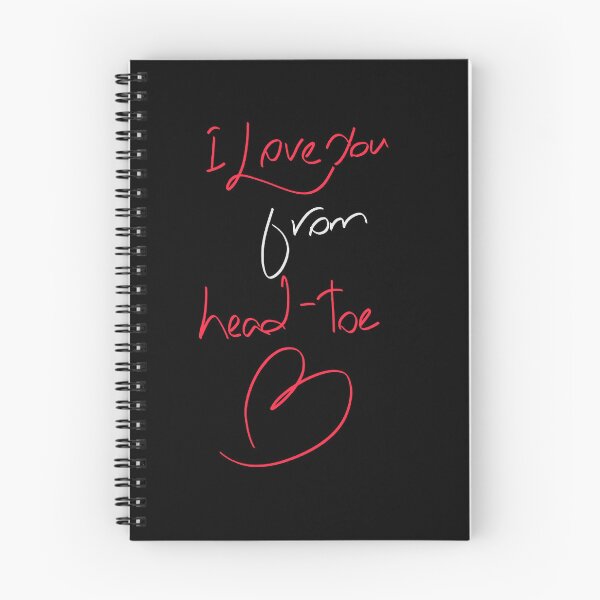 I Love you
from
head-toe